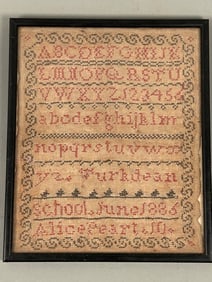 ABCDEFGHIJK
LMNOPQRSTU
VWXYZ123456
abcdefghijklm
nopqrstuvwx
yz. Turkdean
school. June 1886
Alice Peart.